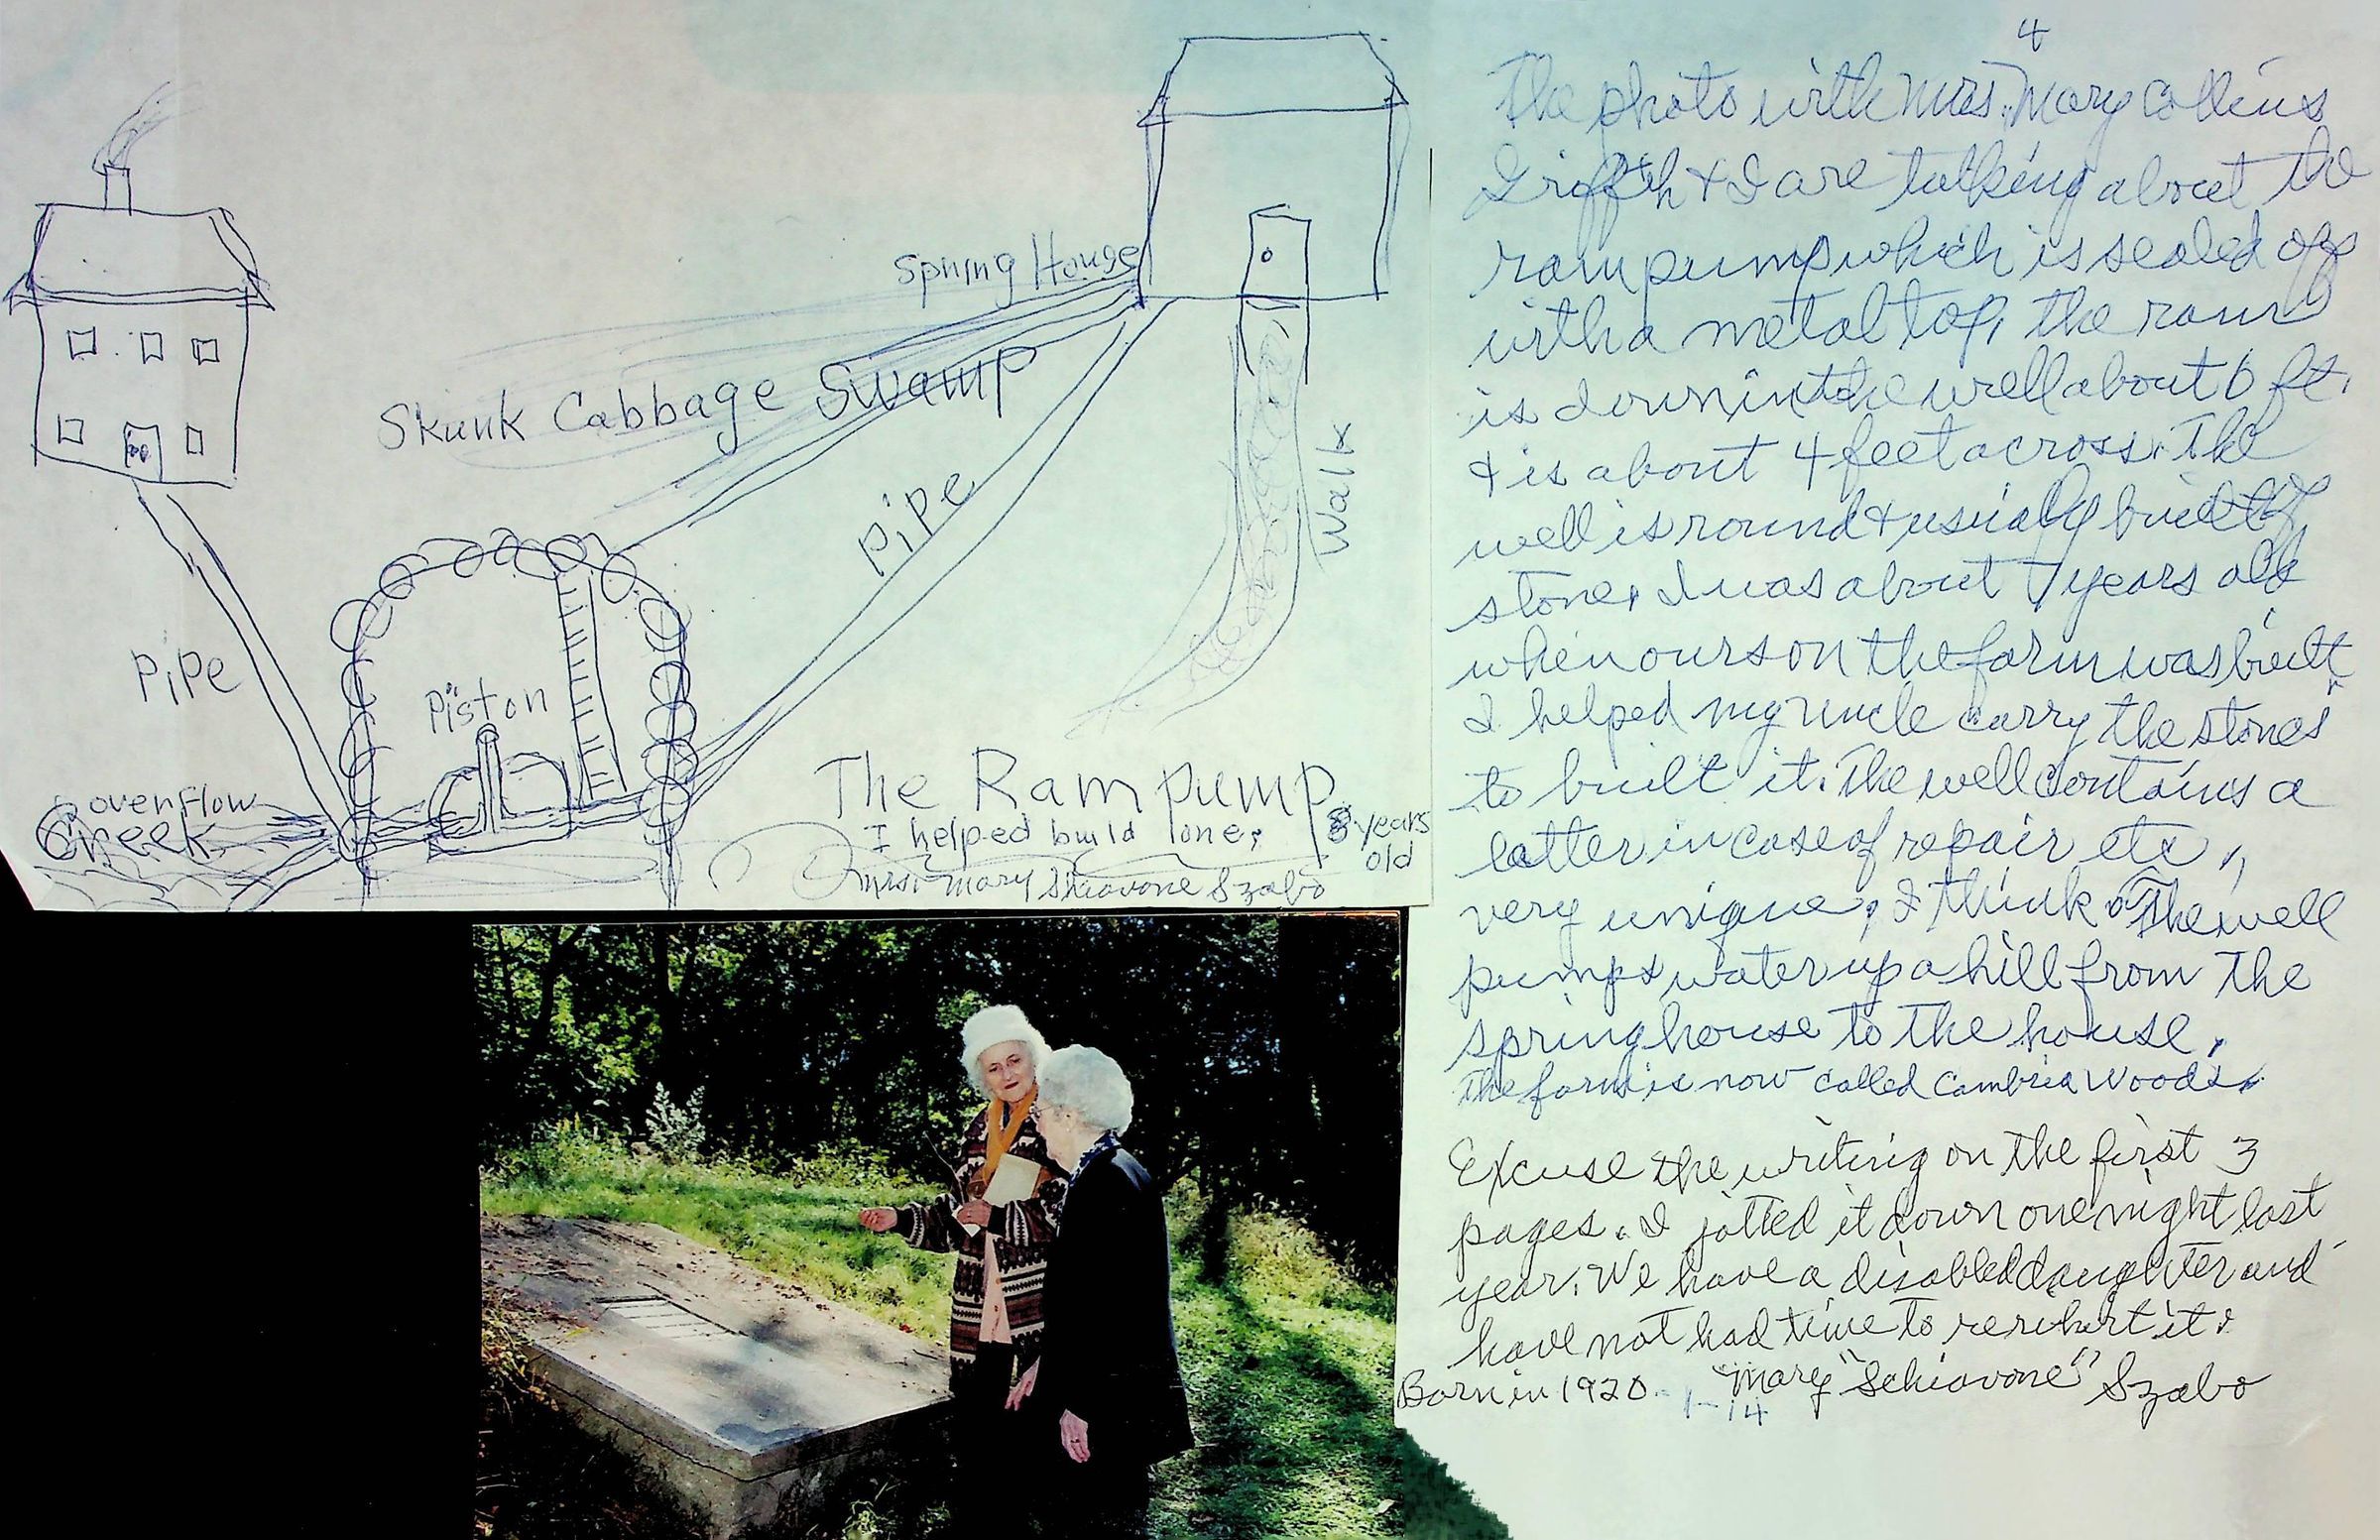 Spring House
Skunk Cabbage Swamp
Pipe
Walk
Pipe
Piston
overflow
Creek
The Ram pump
I helped build one; 8 years
old
Mrs. Mary Shiavone Szabo
4
The photo with Mrs. Mary Collins
Griffith & I are talking about the
ram pump which is sealed off
with a metal top, the ram
is down in the well about 6 ft.
& is about 4 feet across. The
well is round & usually built of
stone, I was about 7 years old
when ours on the farm was built
I helped my uncle carry the stones
to built it. The well contains a
latter in case of repair etc.,
very unique, I think. The well
pumps water up a hill from the
spring house to the house.
The farm is now called Cambria Woods.
Excuse the writing on the first 3
pages. I jotted it down one night last
year. We have a disabled daughter and
have not had time to rewhirt it.
Born in 1920. Mary "Schiavone" Szabo
1-14